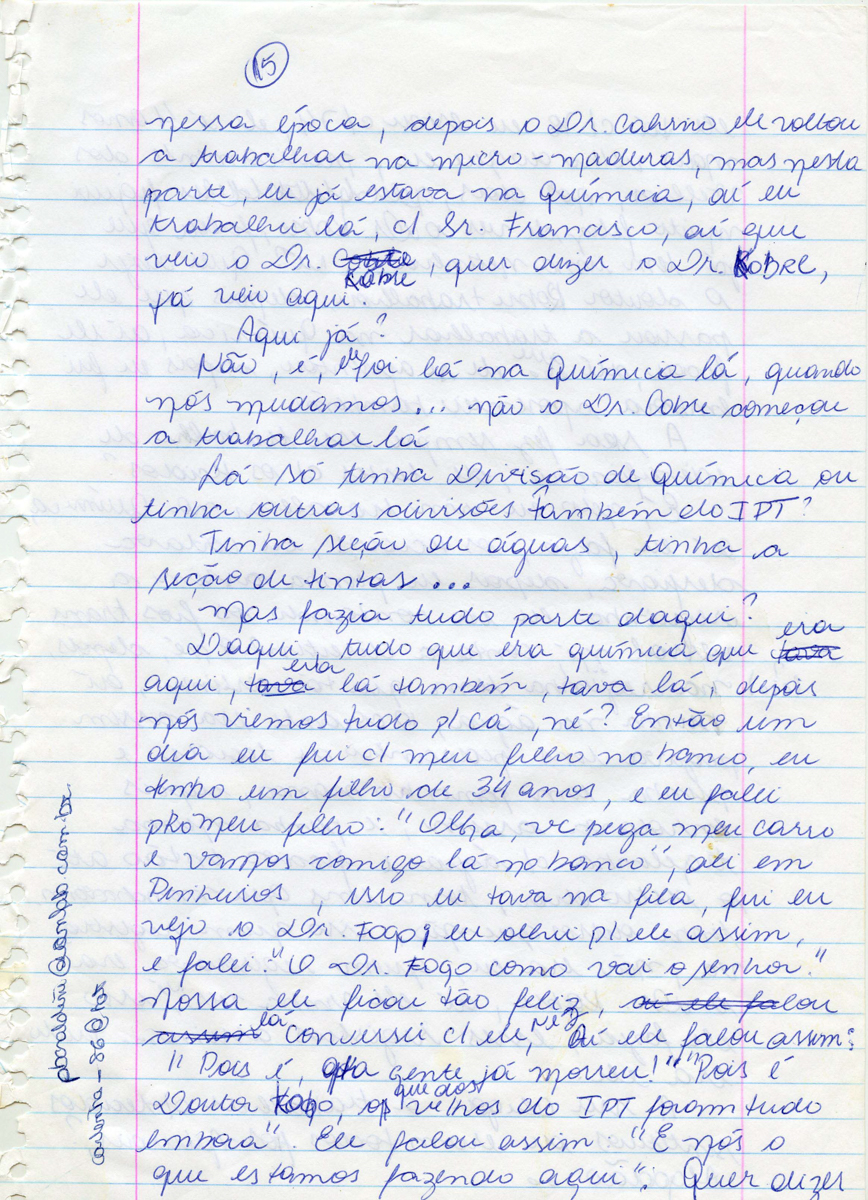 15
nessa época, depois o Dr. Cabrino ele voltou
a trabalhar na micro-maduras, mas nesta
parte, eu já estava na Química, aí eu
trabalhei lá, c/ Sr. Francisco, aí que
veio o Dr. Kobre, quer dizer o Dr. KoBRE,
já veio aqui.
Aqui já?
Não, é, foi lá na Química lá, quando
nós mudamos... não o Dr. Cobre começou
a trabalhar lá
Lá só tinha Divisão de Química ou
tinha outras divisões também do IPT?
Tinha seção de águas, tinha a
seção de tintas...
Mas fazia tudo parte daqui?
Daqui, tudo que era química que era
aqui, era lá também, tava lá, depois
nós viemos tudo p/ cá, né? Então um
dia eu fui c/ meu filho no banco, eu
tenho um filho de 34 anos, e eu falei
pro meu filho: "Olha, vc pega meu carro
e vamos comigo lá no banco", ali em
Pinheiros, isso eu tava na fila, fui eu
vejo o Dr. Fogo, eu olhei p/ ele assim,
e falei: "O Dr. Fogo como vai o senhor."
Nossa ele ficou tão feliz, aí ele falou
assim lá conversei c/ ele, né? Aí ele falou assim:
"Pois é, qta gente já morreu!" "Pois é
Doutor Fogo, que dos velhos do IPT foram tudo
embora". Ele falou assim: "E nós o
que estamos fazendo aqui". Quer dizer